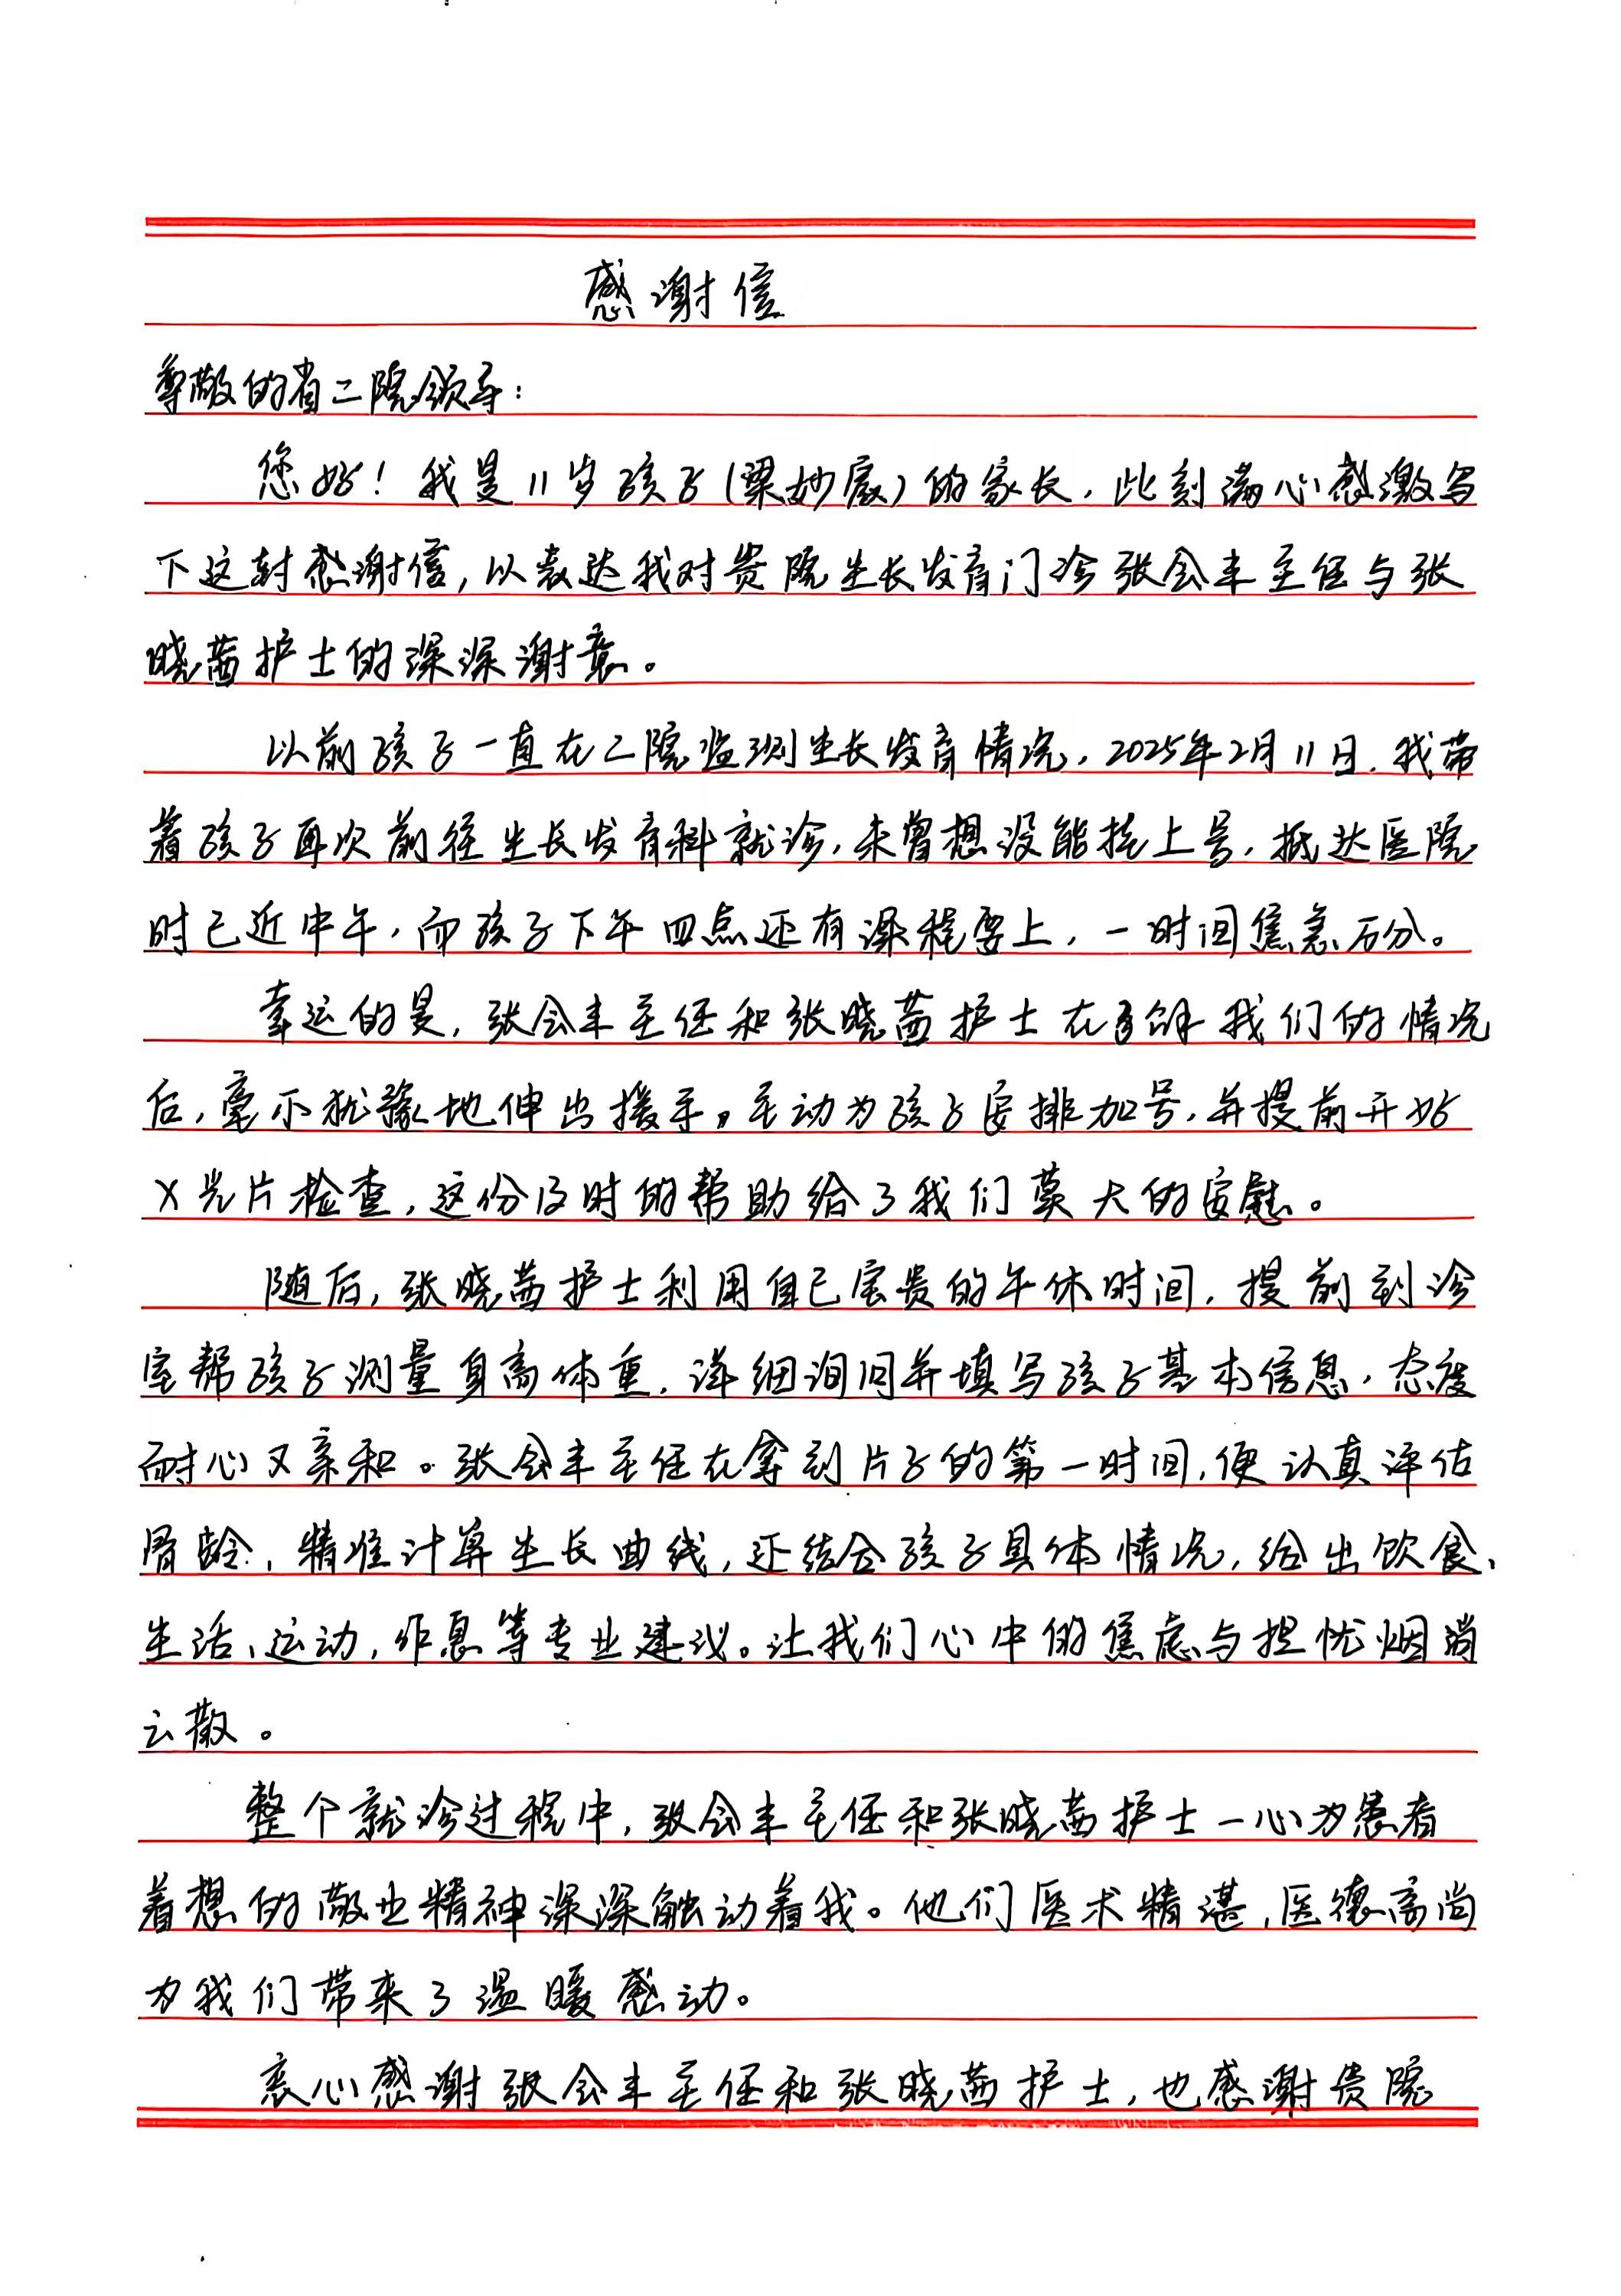 感谢信
尊敬的省二院领导：
您好！我是11岁孩子（梁妙宸）的家长，此刻满心感激写
下这封感谢信，以表达我对贵院生长发育门诊张会丰主任与张
晓茜护士的深深谢意。
以前孩子一直在二院监测生长发育情况，2025年2月11日，我带
着孩子再次前往生长发育科就诊，未曾想没能挂上号，抵达医院
时已近中午，而孩子下午四点还有课程要上，一时间焦急万分。
幸运的是，张会丰主任和张晓茜护士在了解我们的情况
后，毫不犹豫地伸出援手，主动为孩子安排加号，并提前开好
X光片检查，这份及时的帮助给了我们莫大的安慰。
随后，张晓茜护士利用自己宝贵的午休时间，提前到诊
室帮孩子测量身高体重，详细询问并填写孩子基本信息，态度
耐心又亲和。张会丰主任在拿到片子的第一时间，便认真评估
骨龄，精准计算生长曲线，还结合孩子具体情况，给出饮食、
生活、运动，作息等专业建议。让我们心中的焦虑与担忧烟消
云散。
整个就诊过程中，张会丰主任和张晓茜护士一心为患者
着想的敬业精神深深触动着我。他们医术精湛，医德高尚
为我们带来了温暖感动。
衷心感谢张会丰主任和张晓茜护士，也感谢贵院